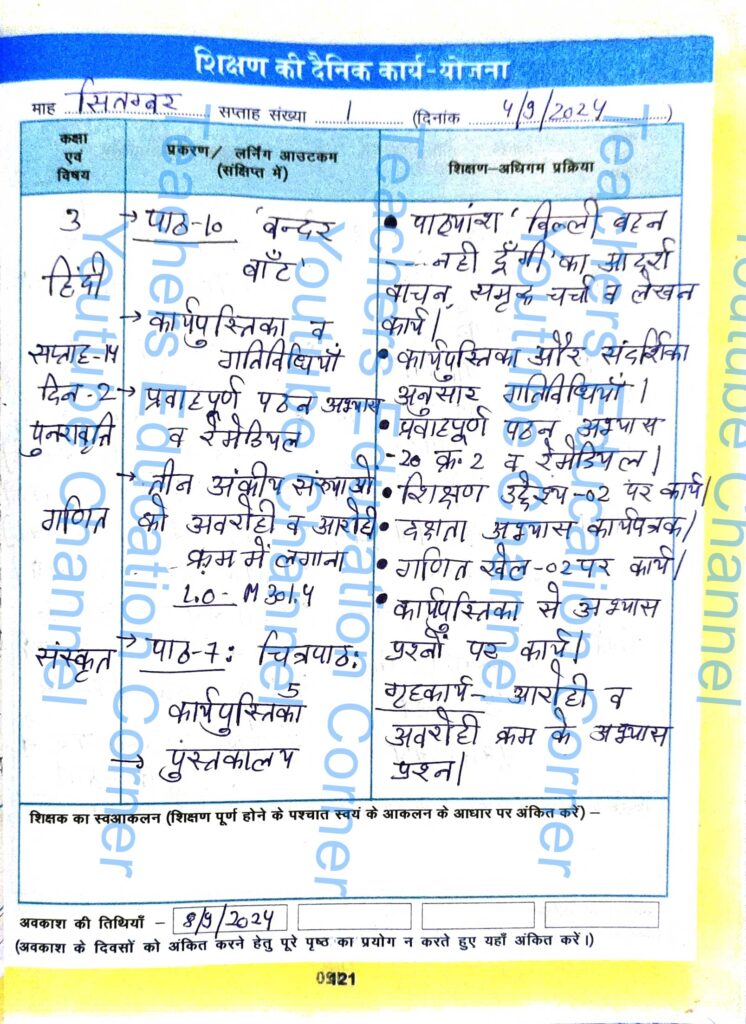 शिक्षण की दैनिक कार्य-योजना
माह सितम्बर सप्ताह संख्या 1 (दिनांक 4/9/2024)
कक्षा एवं विषय
प्रकरण/ लर्निंग आउटकम (संक्षिप्त में)
शिक्षण-अधिगम प्रक्रिया
3
हिंदी
सप्ताह-14
दिन-2
पुनरावृत्ति
गणित
संस्कृत
→ पाठ-10 'बन्दर
बाँट'
→ कार्यपुस्तिका व
गतिविधियाँ
→ प्रवाहपूर्ण पठन अभ्यास
व रेमेडियल
→ तीन अंकीय संख्याओं
को अवरोही व आरोही
क्रम में लगाना
L.O- M301.4
→ पाठ-7: चित्रपाठ:
5
कार्यपुस्तिका
→ पुस्तकालय
• पाठ्यांश 'बिल्ली बहन
---- नही दूँगी' का आदर्श
वाचन, समूह चर्चा व लेखन
कार्य।
• कार्यपुस्तिका और संदर्शिका
अनुसार गतिविधियाँ।
• प्रवाहपूर्ण पठन अभ्यास
-20 क्र.2 व रेमेडियल।
• शिक्षण उद्देश्य-02 पर कार्य।
• दक्षता अभ्यास कार्यपत्रक।
• गणित खेल-02 पर कार्य।
• कार्यपुस्तिका से अभ्यास
प्रश्नों पर कार्य।
गृहकार्य- आरोही व
अवरोही क्रम के अभ्यास
प्रश्न।
शिक्षक का स्वआकलन (शिक्षण पूर्ण होने के पश्चात स्वयं के आकलन के आधार पर अंकित करें) –
अवकाश की तिथियाँ – 8/9/2024
(अवकाश के दिवसों को अंकित करने हेतु पूरे पृष्ठ का प्रयोग न करते हुए यहाँ अंकित करें।)
121
Teachers Education Corner
Youtube Channel
Teachers Education Corner
Youtube Channel
Teachers Education Corner
Youtube Channel